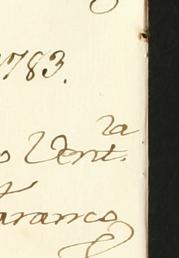 1783.
o Ventª.
aranco